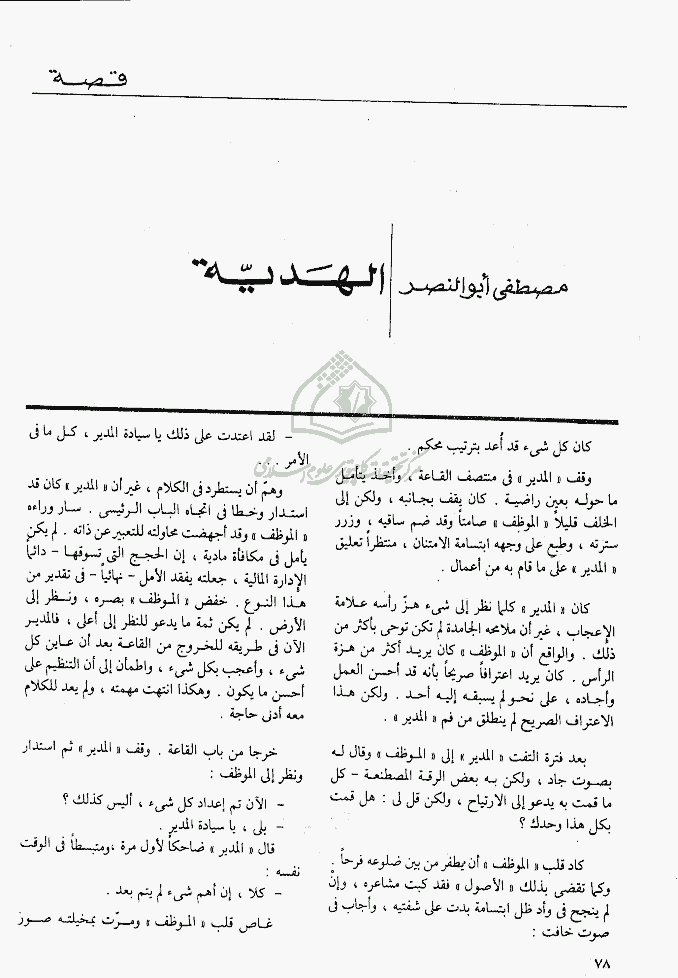 قصة
الهديّة
مصطفى أبو النصر
كان كل شىء قد أُعد بترتيب محكم .
وقف « المدير » فى منتصف القاعة ، وأخذ يتأمل
ما حوله بعين راضية . كان يقف بجانبه ، ولكن إلى
الخلف قليلاً « الموظف » صامتاً وقد ضم ساقيه ، وزرر
سترته ، وطبع على وجهه ابتسامة الامتنان ، منتظراً تعليق
« المدير » على ما قام به من أعمال .
كان « المدير » كلما نظر إلى شىء هزّ رأسه علامة
الإعجاب ، غير أن ملامحه الجامدة لم تكن توحى بأكثر من
ذلك . والواقع أن « الموظف » كان يريد أكثر من هزة
الرأس . كان يريد اعترافاً صريحاً بأنه قد أحسن العمل
وأجاده ، على نحو لم يسبقه إليه أحد . ولكن هذا
الاعتراف الصريح لم ينطلق من فم « المدير » .
بعد فترة التفت « المدير » إلى « الموظف » وقال له
بصوت جاد ، ولكن به بعض الرقة المصطنعة - كل
ما قمت به يدعو إلى الارتياح ، ولكن قل لى : هل قمت
بكل هذا وحدك ؟
كاد قلب « الموظف » أن يطفر من بين ضلوعه فرحاً .
وكما تقضى بذلك « الأصول » فقد كبت مشاعره ، وإنْ
لم ينجح فى وأد ظل ابتسامة بدت على شفتيه ، وأجاب فى
صوت خافت :
- لقد اعتدت على ذلك يا سيادة المدير ، كل ما فى
الأمر . .
وهمّ أن يستطرد فى الكلام ، غير أن « المدير » كان قد
استدار وخطا فى اتجاه الباب الرئيسى . سار وراءه
« الموظف » وقد أجهضت محاولته للتعبير عن ذاته . لم يكن
يأمل فى مكافأة مادية ، إن الحجج التى تسوقها - دائماً
الإدارة المالية ، جعلته يفقد الأمل - نهائياً - فى تقدير من
هذا النوع . خفض « الموظف » بصره ، ونظر إلى
الأرض . لم يكن ثمة ما يدعو للنظر إلى أعلى ، فالمدير
الآن فى طريقه للخروج من القاعة بعد أن عاين كل
شىء ، وأعجب بكل شىء ، واطمأن إلى أن التنظيم على
أحسن ما يكون . وهكذا انتهت مهمته ، ولم يعد للكلام
معه أدنى حاجة .
خرجا من باب القاعة . وقف « المدير » ثم استدار
ونظر إلى الموظف :
- الآن تم إعداد كل شىء ، أليس كذلك ؟
- بلى ، يا سيادة المدير .
قال « المدير » ضاحكاً لأول مرة ، ومتبسطاً فى الوقت
نفسه :
- كلا ، إن أهم شىء لم يتم بعد .
غاص قلب « الموظف » ومرّت بمخيلته صور
٧٨